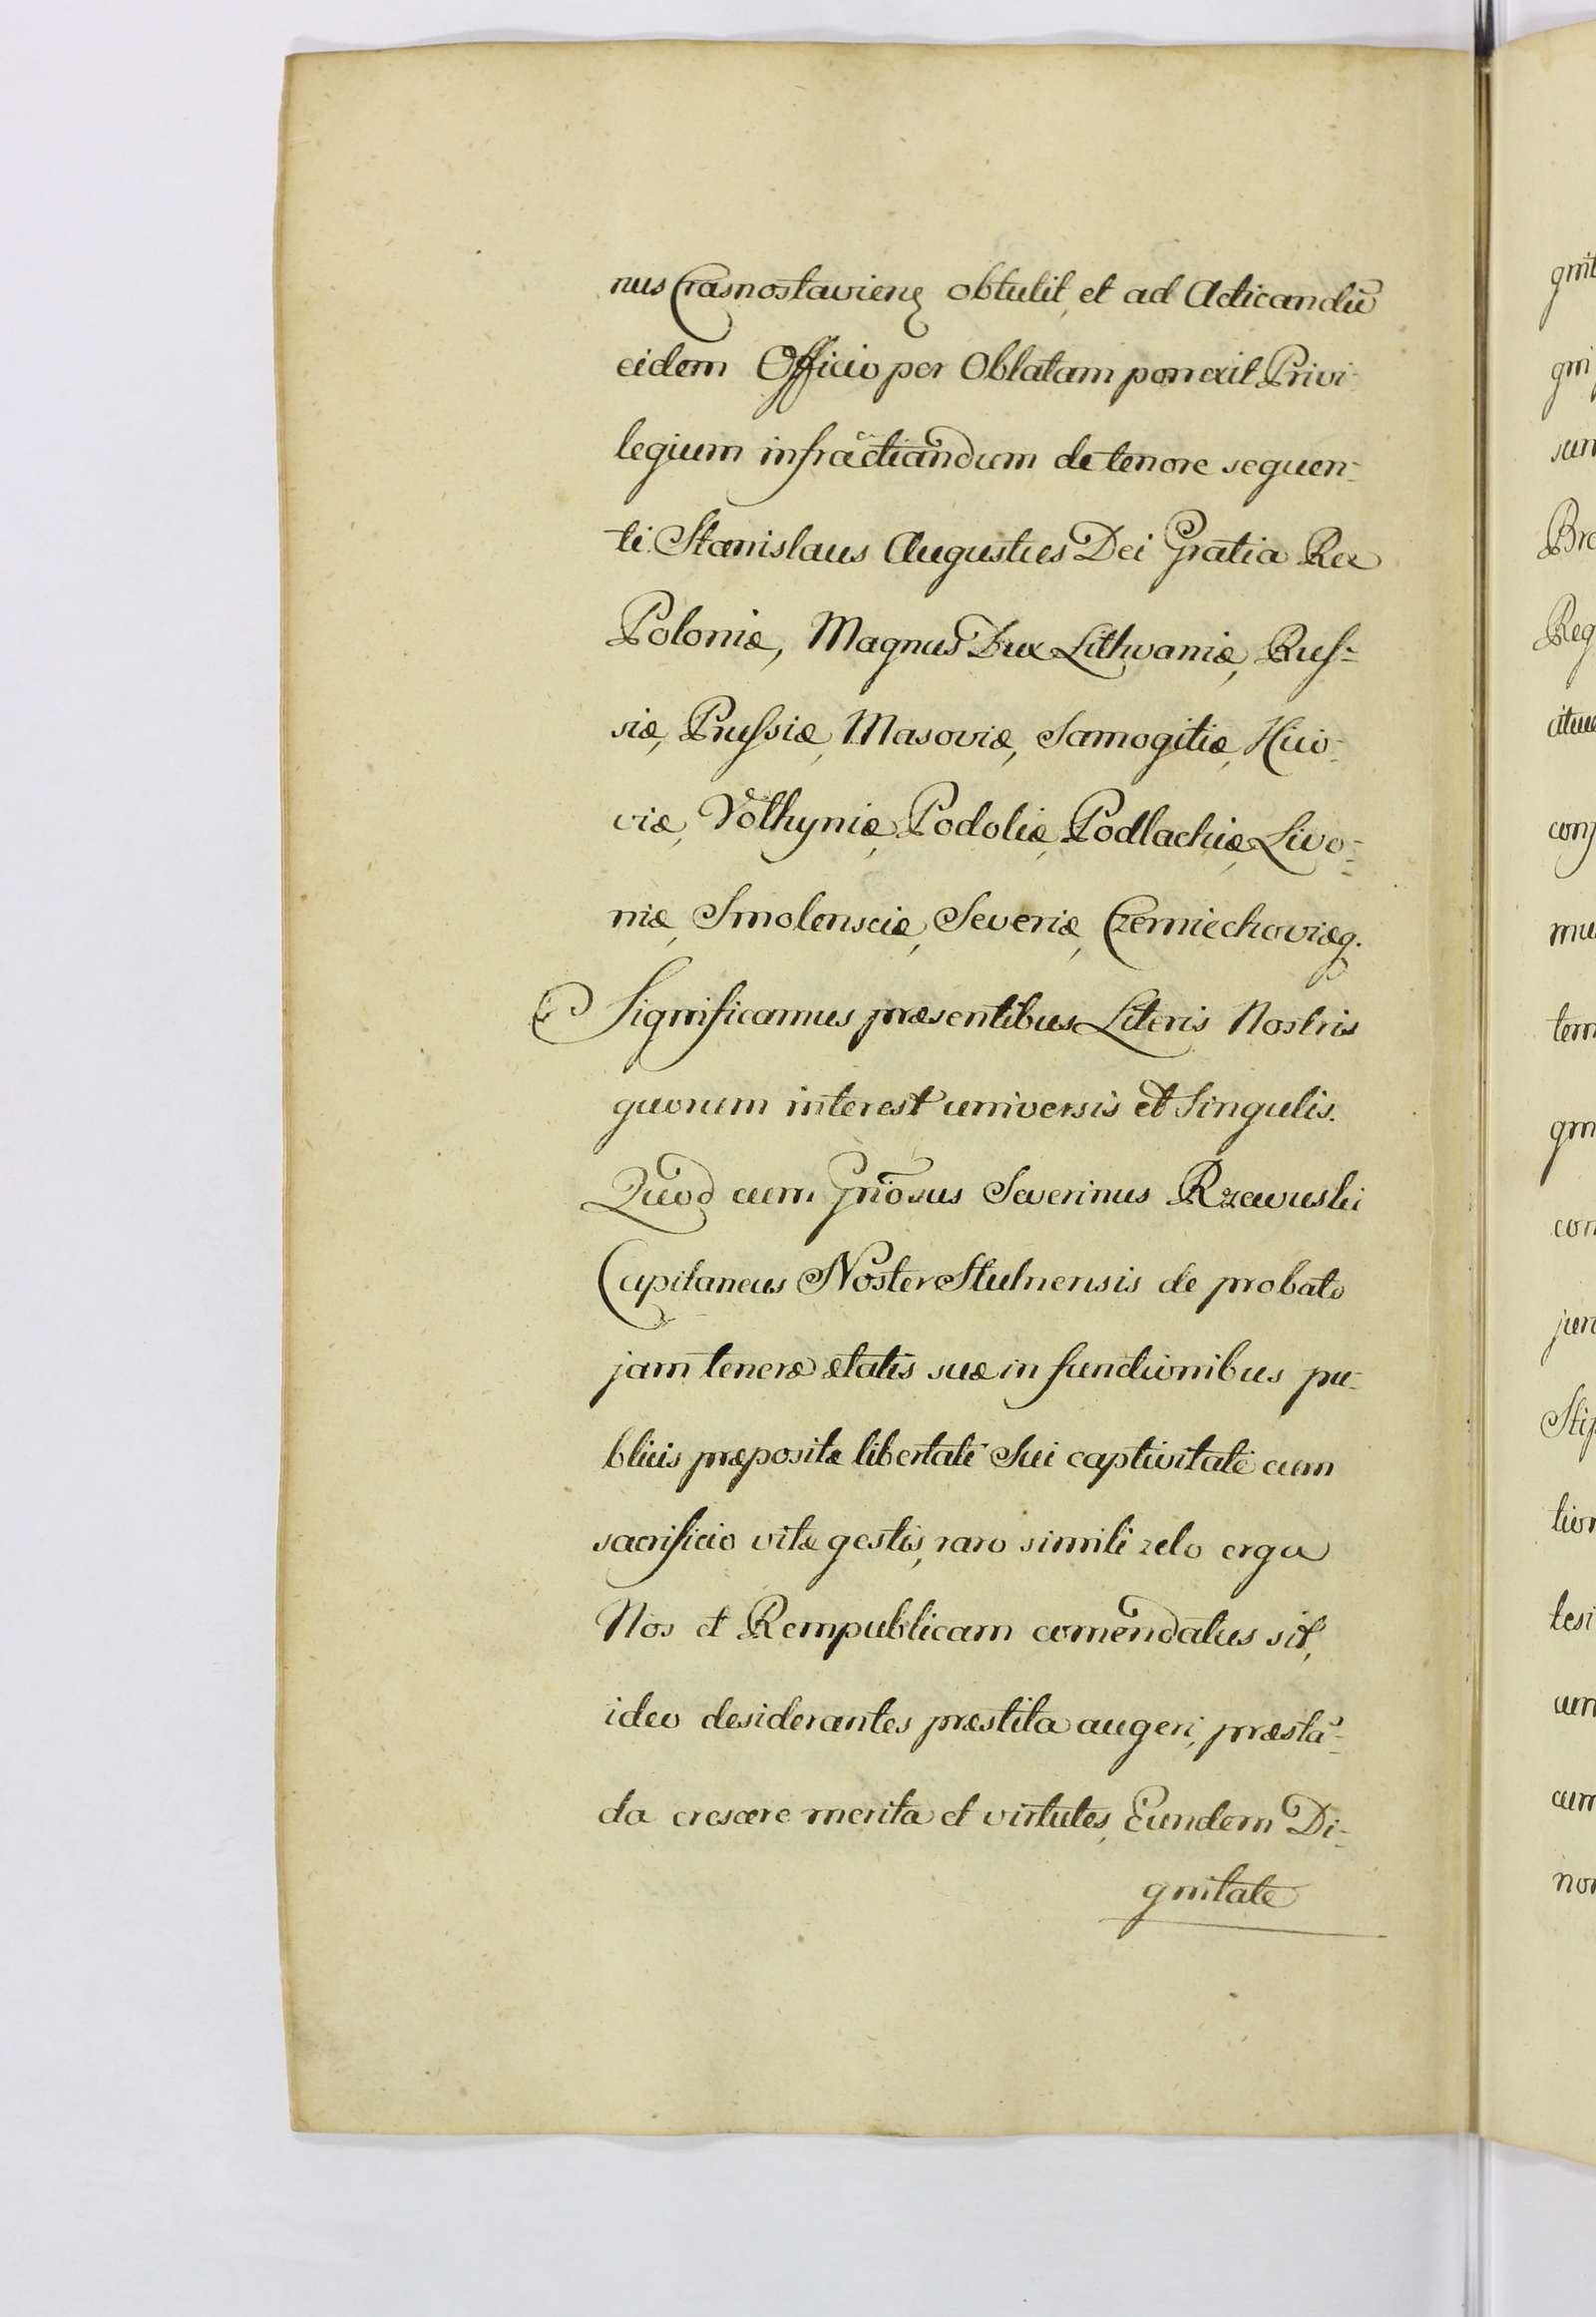 nus Crasnostavien̄ obtulit, et ad Acticandū
eidem Officio per Oblatam porrexit Privi-
legium infra ācticandum de tenore sequen-
ti. Stanislaus Augustus Dei Gratia Rex
Poloniæ, Magnus Dux Lithvaniæ, Rus-
siæ, Prussiæ, Masoviæ, Samogitiæ, Kiio-
viæ, Volhyniæ, Podoliæ, Podlachiæ, Livo-
niæ, Smolensciæ, Severiæ, Czerniechoviæq.
Significamus præsentibus Literis Nostris
quorum interest universis et Singulis.
Quod cum Gn̄osus Severinus Rzewuski
Capitaneus Noster Stulnensis de probato
jam teneræ ætatis suæ in functionibus pu-
blicis præpositæ libertati Sui captivitate cum
sacrificio vitæ gestis, raro simili zelo erga
Nos et Rempublicam com̄endatus sit,
ideo desiderantes præstita augeri, præstā-
da crescere merita et virtutes, Eundem Di-
gnitate
gnit
gni
sun
Bre
Reg
conj
mu
tem
com
jur
Stip
tion
tesi
um
cum
non